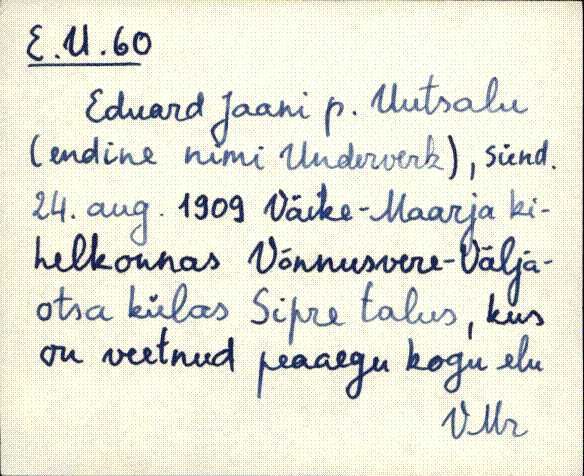 E.U.60
Eduard Jaani p. Uutsalu
(endine nimi Underverk), sünd.
24. aug. 1909 Väike-Maarja ki-
helkonnas Võnnusvere-Välja-
otsa külas Sipre talus, kus
on veetnud peaaegu kogu elu
VMr